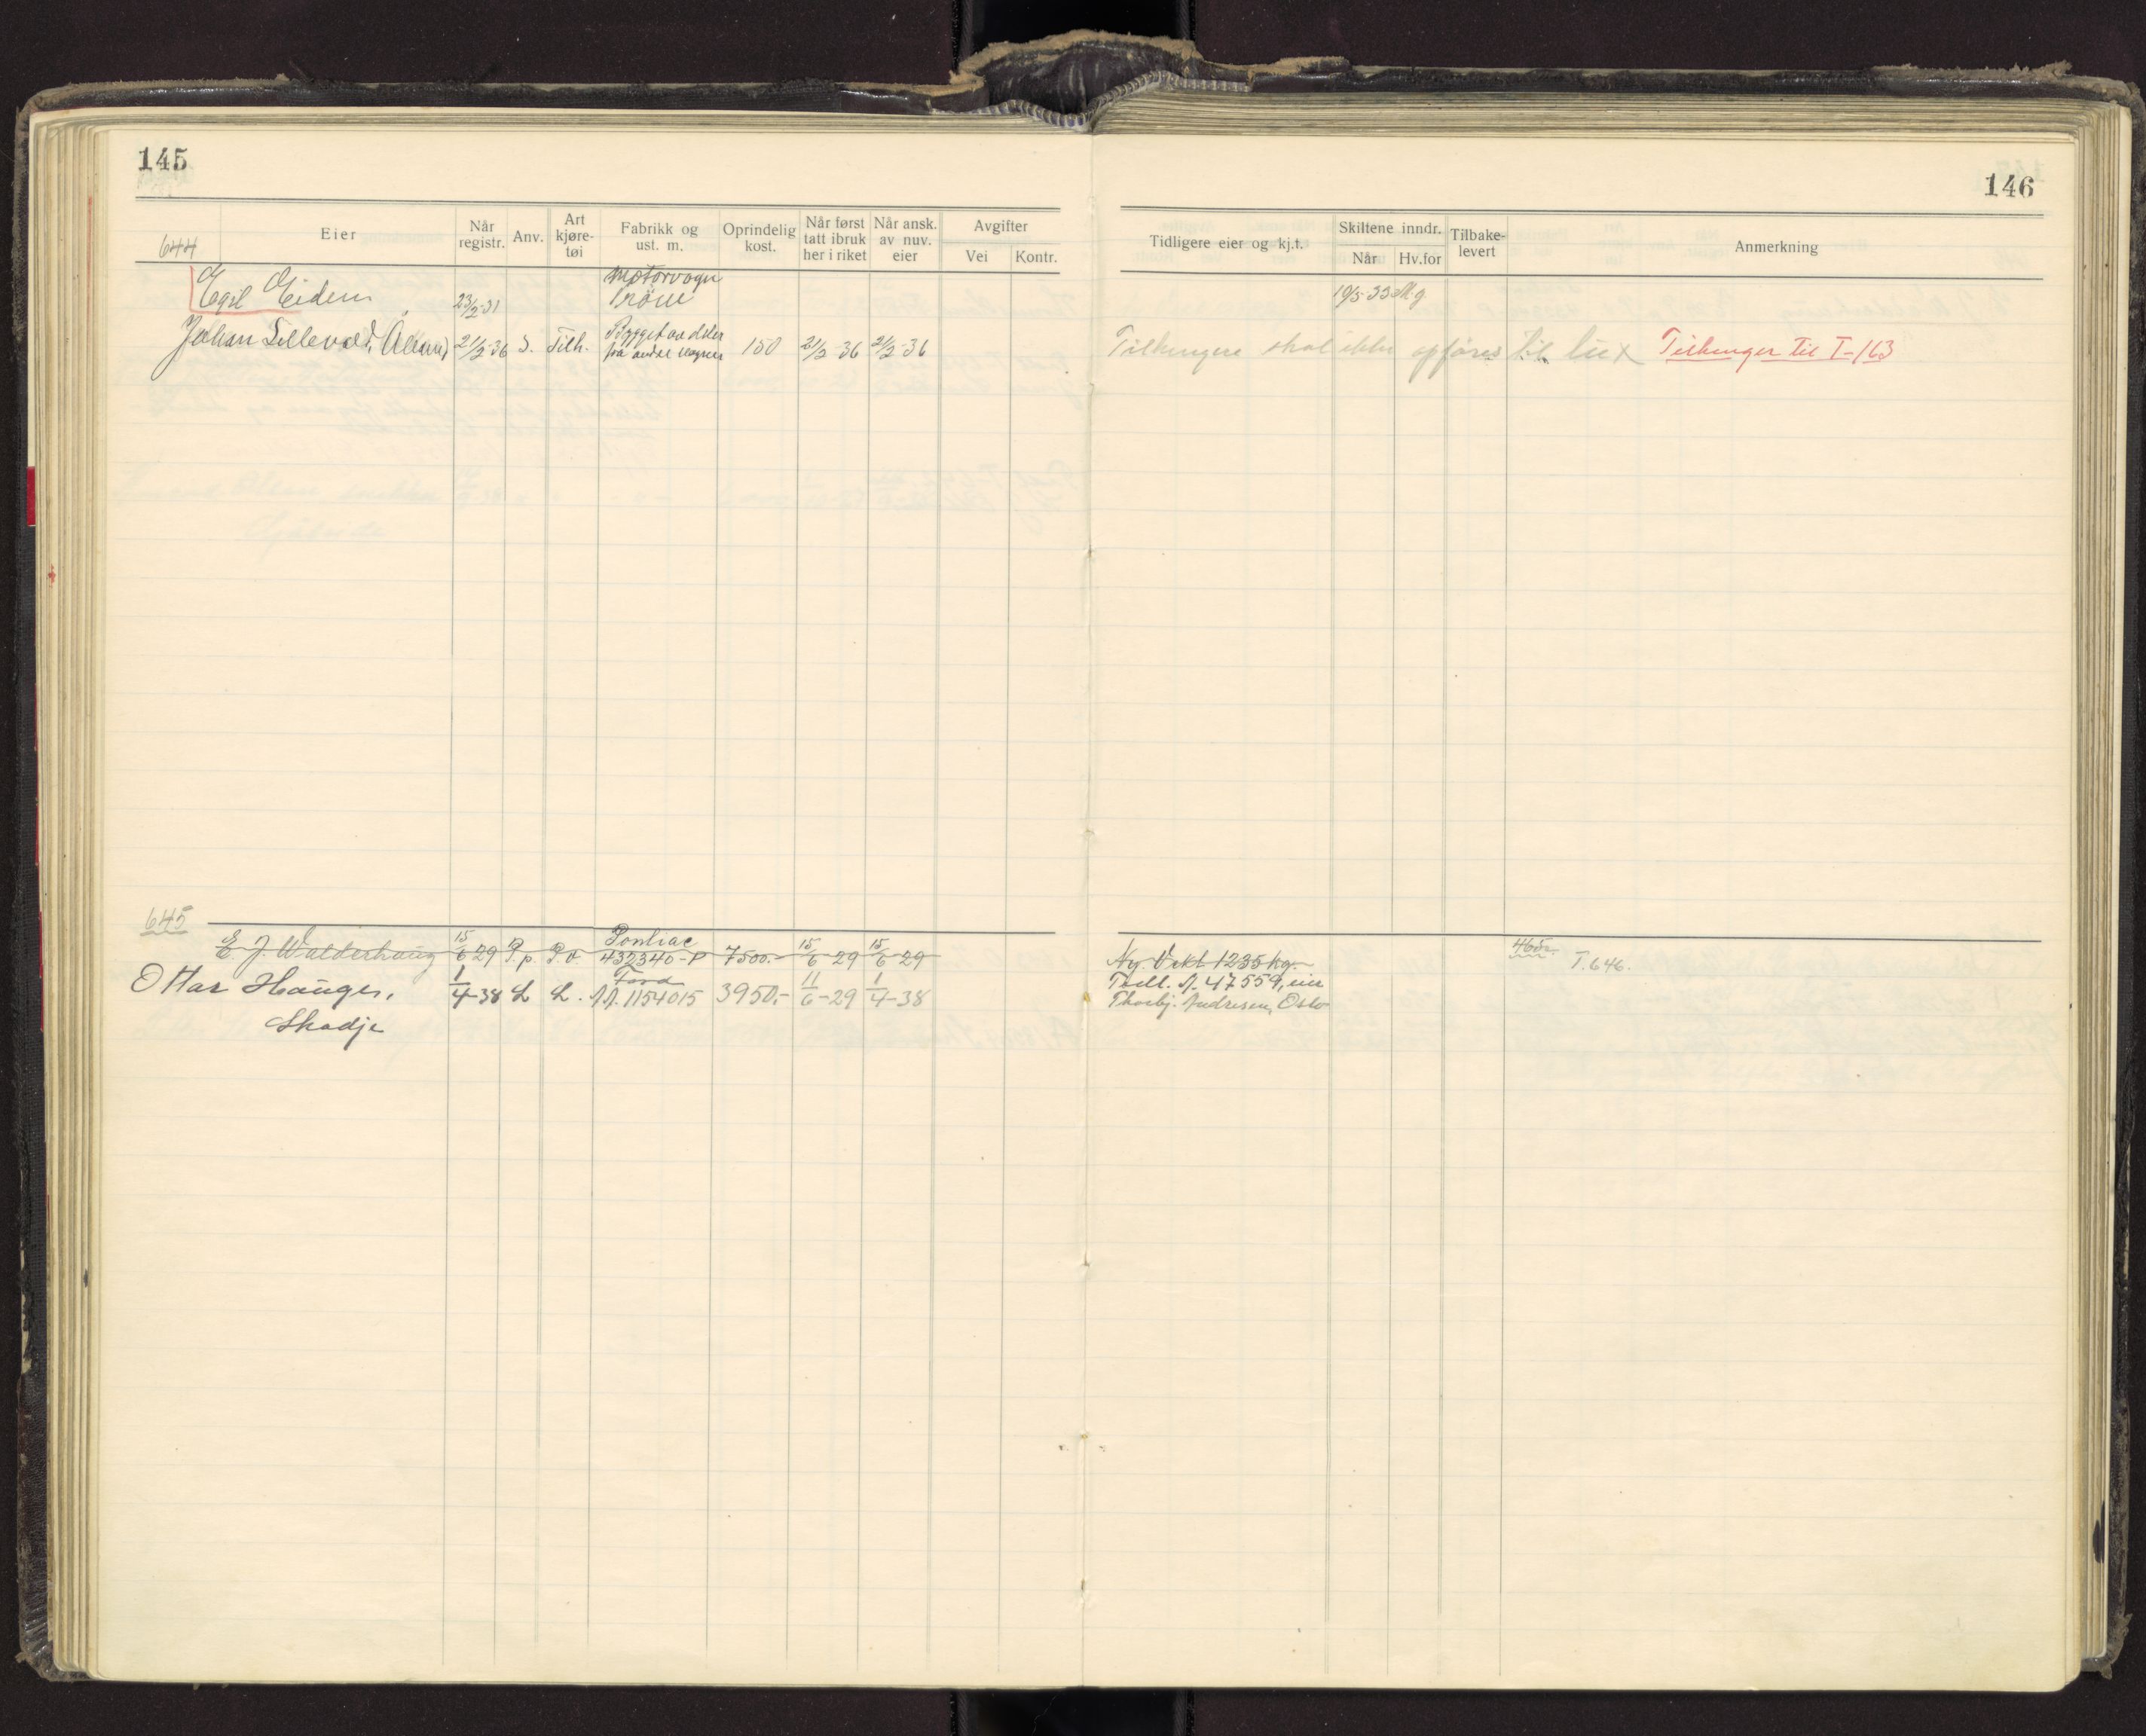 145
146
644
Eier
Når registr.
Anv.
Art kjøre-tøi
Fabrikk og ust. m.
Oprindelig kost.
Når først tatt ibruk her i riket
Når ansk. av nuv. eier
Avgifter
Vei
Kontr.
Tidligere eier og kj.t.
Skiltene inndr.
Når
Hv.for
Tilbake-levert
Anmerkning
Motorvogn
Egil Eidem 23/2-31 Prøve 10/5-33
Johan Lillevold, Ålesund 21/2-36 S. Tilh. Bygget av deler fra andre vogner 150 21/2-36 21/2-36
Tilhengere skal ikke opføres til Tilhenger til T-163
645
E. J. Walderhaug 15/6 29 P.p. P.v Pontiac 432340-P 7500.- 15/6-29 15/6-29 Ny. Vekt 1235 kg. 465 T.646.
Ottar Hauger, 1/4-38 L L. Ford A.A. 1154015 3950.- 11/6-29 1/4-38 Tidl. A. 47559, eier
Skodje Thorbj. Andresen, Oslo